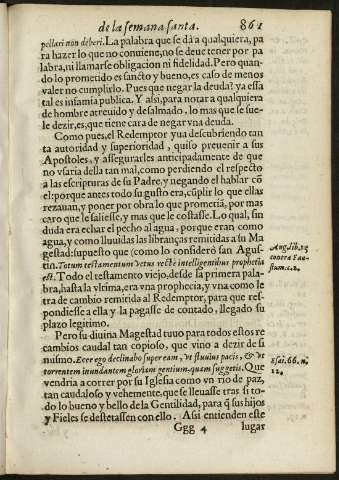 de la semana santa. 861
pellari non deberi. La palabra que se dà a qualquiera, pa
ra hazer lo que no conuiene, no se deue tener por pa
labra, ni llamarse obligacion ni fidelidad. Pero quan-
do lo prometido es sancto y bueno, es caso de menos
valer no cumplirlo. Pues que negar la deuda? ya essa
tal es infamia publica. Y assi, para notar a qualquiera
de hombre atreuido y desalmado, lo mas que se sue-
le dezir, es, que tiene cara de negar vna deuda.
Como pues, el Redemptor yua descubriendo tan
ta autoridad y superioridad, quiso preuenir a sus
Apostoles, y assegurarles anticipadamente de que
no vsaria della tan mal, como perdiendo el respecto
a las escripturas de su Padre, y negando el hablar cō
el: porque antes todo su gusto era, cūplir lo que ellas
rezauan, y poner por obra lo que prometiā, por mas
caro que le saliesse, y mas que le costasse. Lo qual, sin
duda era echar el pecho al agua, porque eran como
agua, y como lluuidas las libranças remitidas a su Ma
gestad: supuesto que (como lo consideró san Agus-
tin. Totum testamentum vetus rectè intelligentibus prophetia
est. Todo el testamento viejo, desde la primera pala-
bra, hasta la vltima, era vna prophecia, y vna como le
tra de cambio remitida al Redemptor, para que res-
pondiesse a ella y la pagasse de contado, llegado su
plazo legitimo.
Aug. lib. 15
contra Fau-
stum. c. 2.
Pero su diuina Magestad tuuo para todos estos re
cambios caudal tan copioso, que vino a dezir de si
mismo. Ecce ego declinabo super eam, vt fluuius pacis, & vt
torrentem inundantem gloriam gentium, quam suggetis. Que
vendria a correr por su Iglesia como vn rio de paz,
tan caudaloso y vehemente, que se lleuasse tras si to-
do lo bueno y bello de la Gentilidad, para q̄ sus hijos
y Fieles se destetassen con ello. Assi entienden este
Esai. 66. n.
12.
Ggg 4 lugar